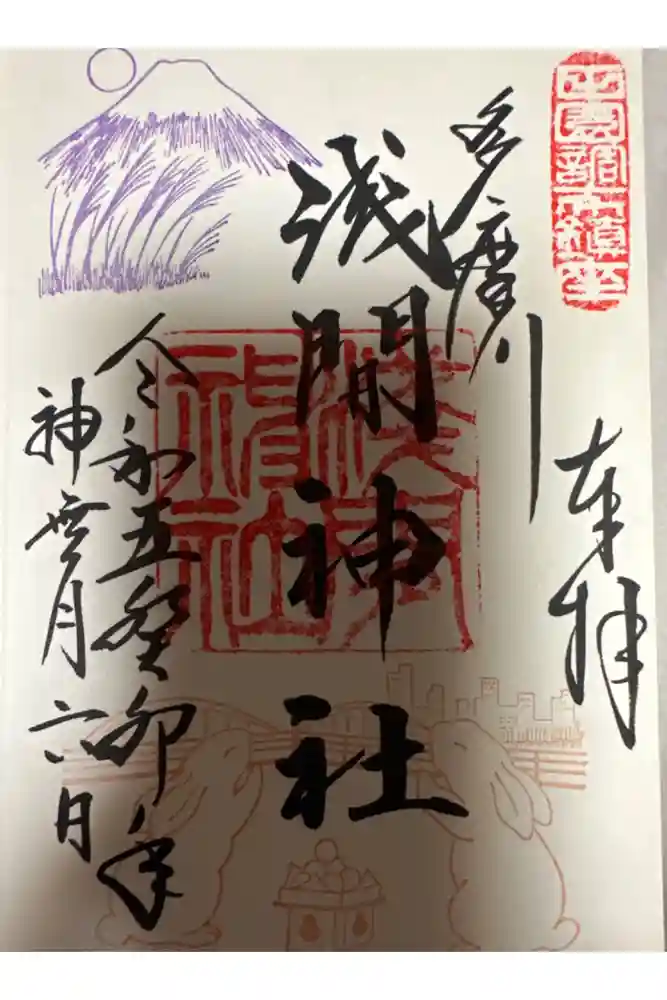 田園調布鎮座
奉拝
多摩川
浅間神社
淺間
神社
令和五癸卯年
神無月六日